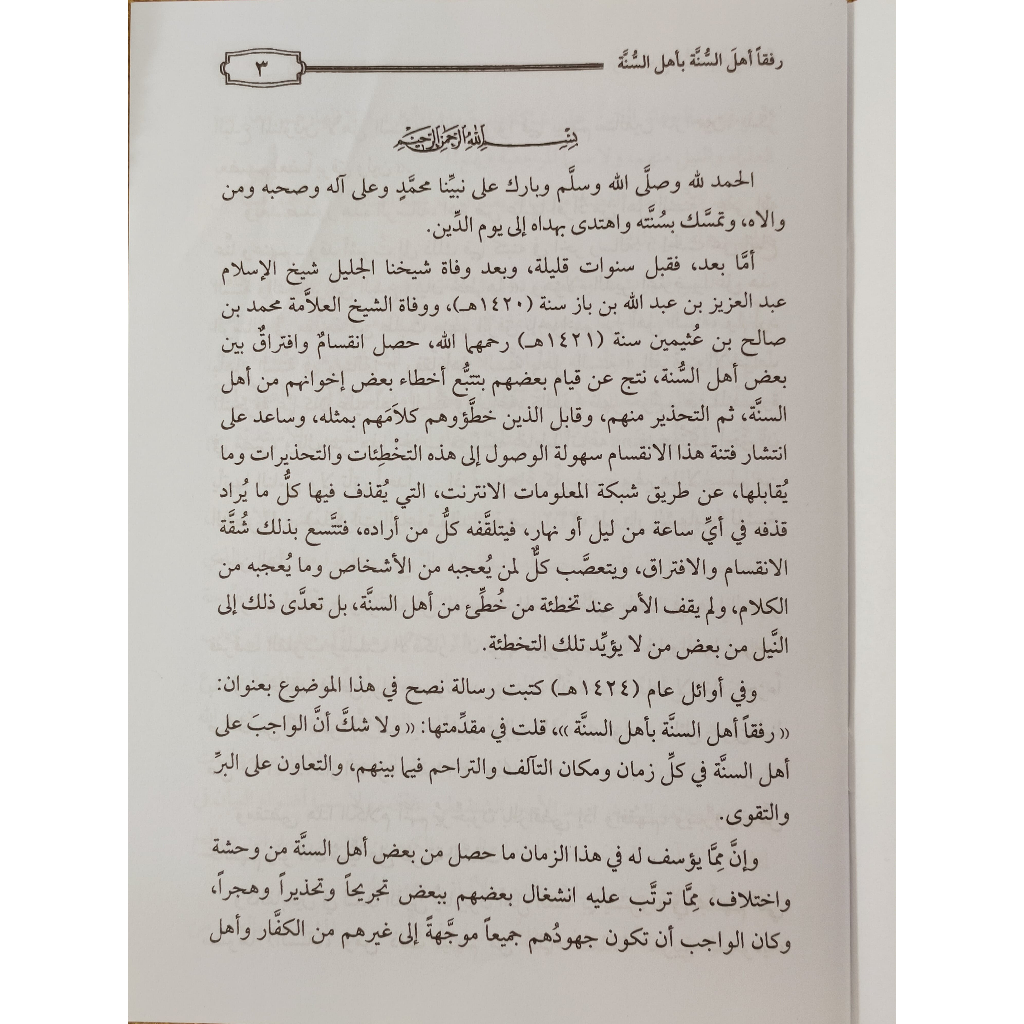 رفقاً أهلَ السُّنَّة بأهل السُّنَّة
٣
بسم الله الرحمن الرحيم
الحمد لله وصلَّى الله وسلَّم وبارك على نبيِّنا محمَّدٍ وعلى آله وصحبه ومن
والاه، وتمسَّك بسُنَّته واهتدى بهداه إلى يوم الدِّين.
أمَّا بعد، فقبل سنوات قليلة، وبعد وفاة شيخنا الجليل شيخ الإسلام
عبد العزيز بن عبد الله بن باز سنة (١٤٢٠هـ)، ووفاة الشيخ العلاَّمة محمد بن
صالح بن عُثيمين سنة (١٤٢١هـ) رحمهما الله، حصل انقسامٌ وافتراقٌ بين
بعض أهل السُّنة، نتج عن قيام بعضهم بتتبُّع أخطاء بعض إخوانهم من أهل
السنَّة، ثم التحذير منهم، وقابل الذين خطَّؤوهم كلاَمَهم بمثله، وساعد على
انتشار فتنة هذا الانقسام سهولة الوصول إلى هذه التخْطِئات والتحذيرات وما
يُقابلها، عن طريق شبكة المعلومات الانترنت، التي يُقذف فيها كلُّ ما يُراد
قذفه في أيِّ ساعة من ليل أو نهار، فيتلقَّفه كلُّ من أراده، فتتَّسع بذلك شُقَّة
الانقسام والافتراق، ويتعصَّب كلٌّ لمن يُعجبه من الأشخاص وما يُعجبه من
الكلام، ولم يقف الأمر عند تخطئة من خُطِّئ من أهل السنَّة، بل تعدَّى ذلك إلى
النَّيل من بعض من لا يؤيِّد تلك التخطئة.
وفي أوائل عام (١٤٢٤هـ) كتبت رسالة نصح في هذا الموضوع بعنوان:
« رفقاً أهل السنَّة بأهل السنَّة »، قلت في مقدِّمتها: « ولا شكَّ أنَّ الواجبَ على
أهل السنَّة في كلِّ زمان ومكان التآلف والتراحم فيما بينهم، والتعاون على البرِّ
والتقوى.
وإنَّ مِمَّا يؤسف له في هذا الزمان ما حصل من بعض أهل السنَّة من وحشة
واختلاف، مِمَّا ترتَّب عليه انشغال بعضهم ببعض تجريحاً وتحذيراً وهجراً،
وكان الواجب أن تكون جهودُهم جميعاً موجَّهةً إلى غيرهم من الكفَّار وأهل